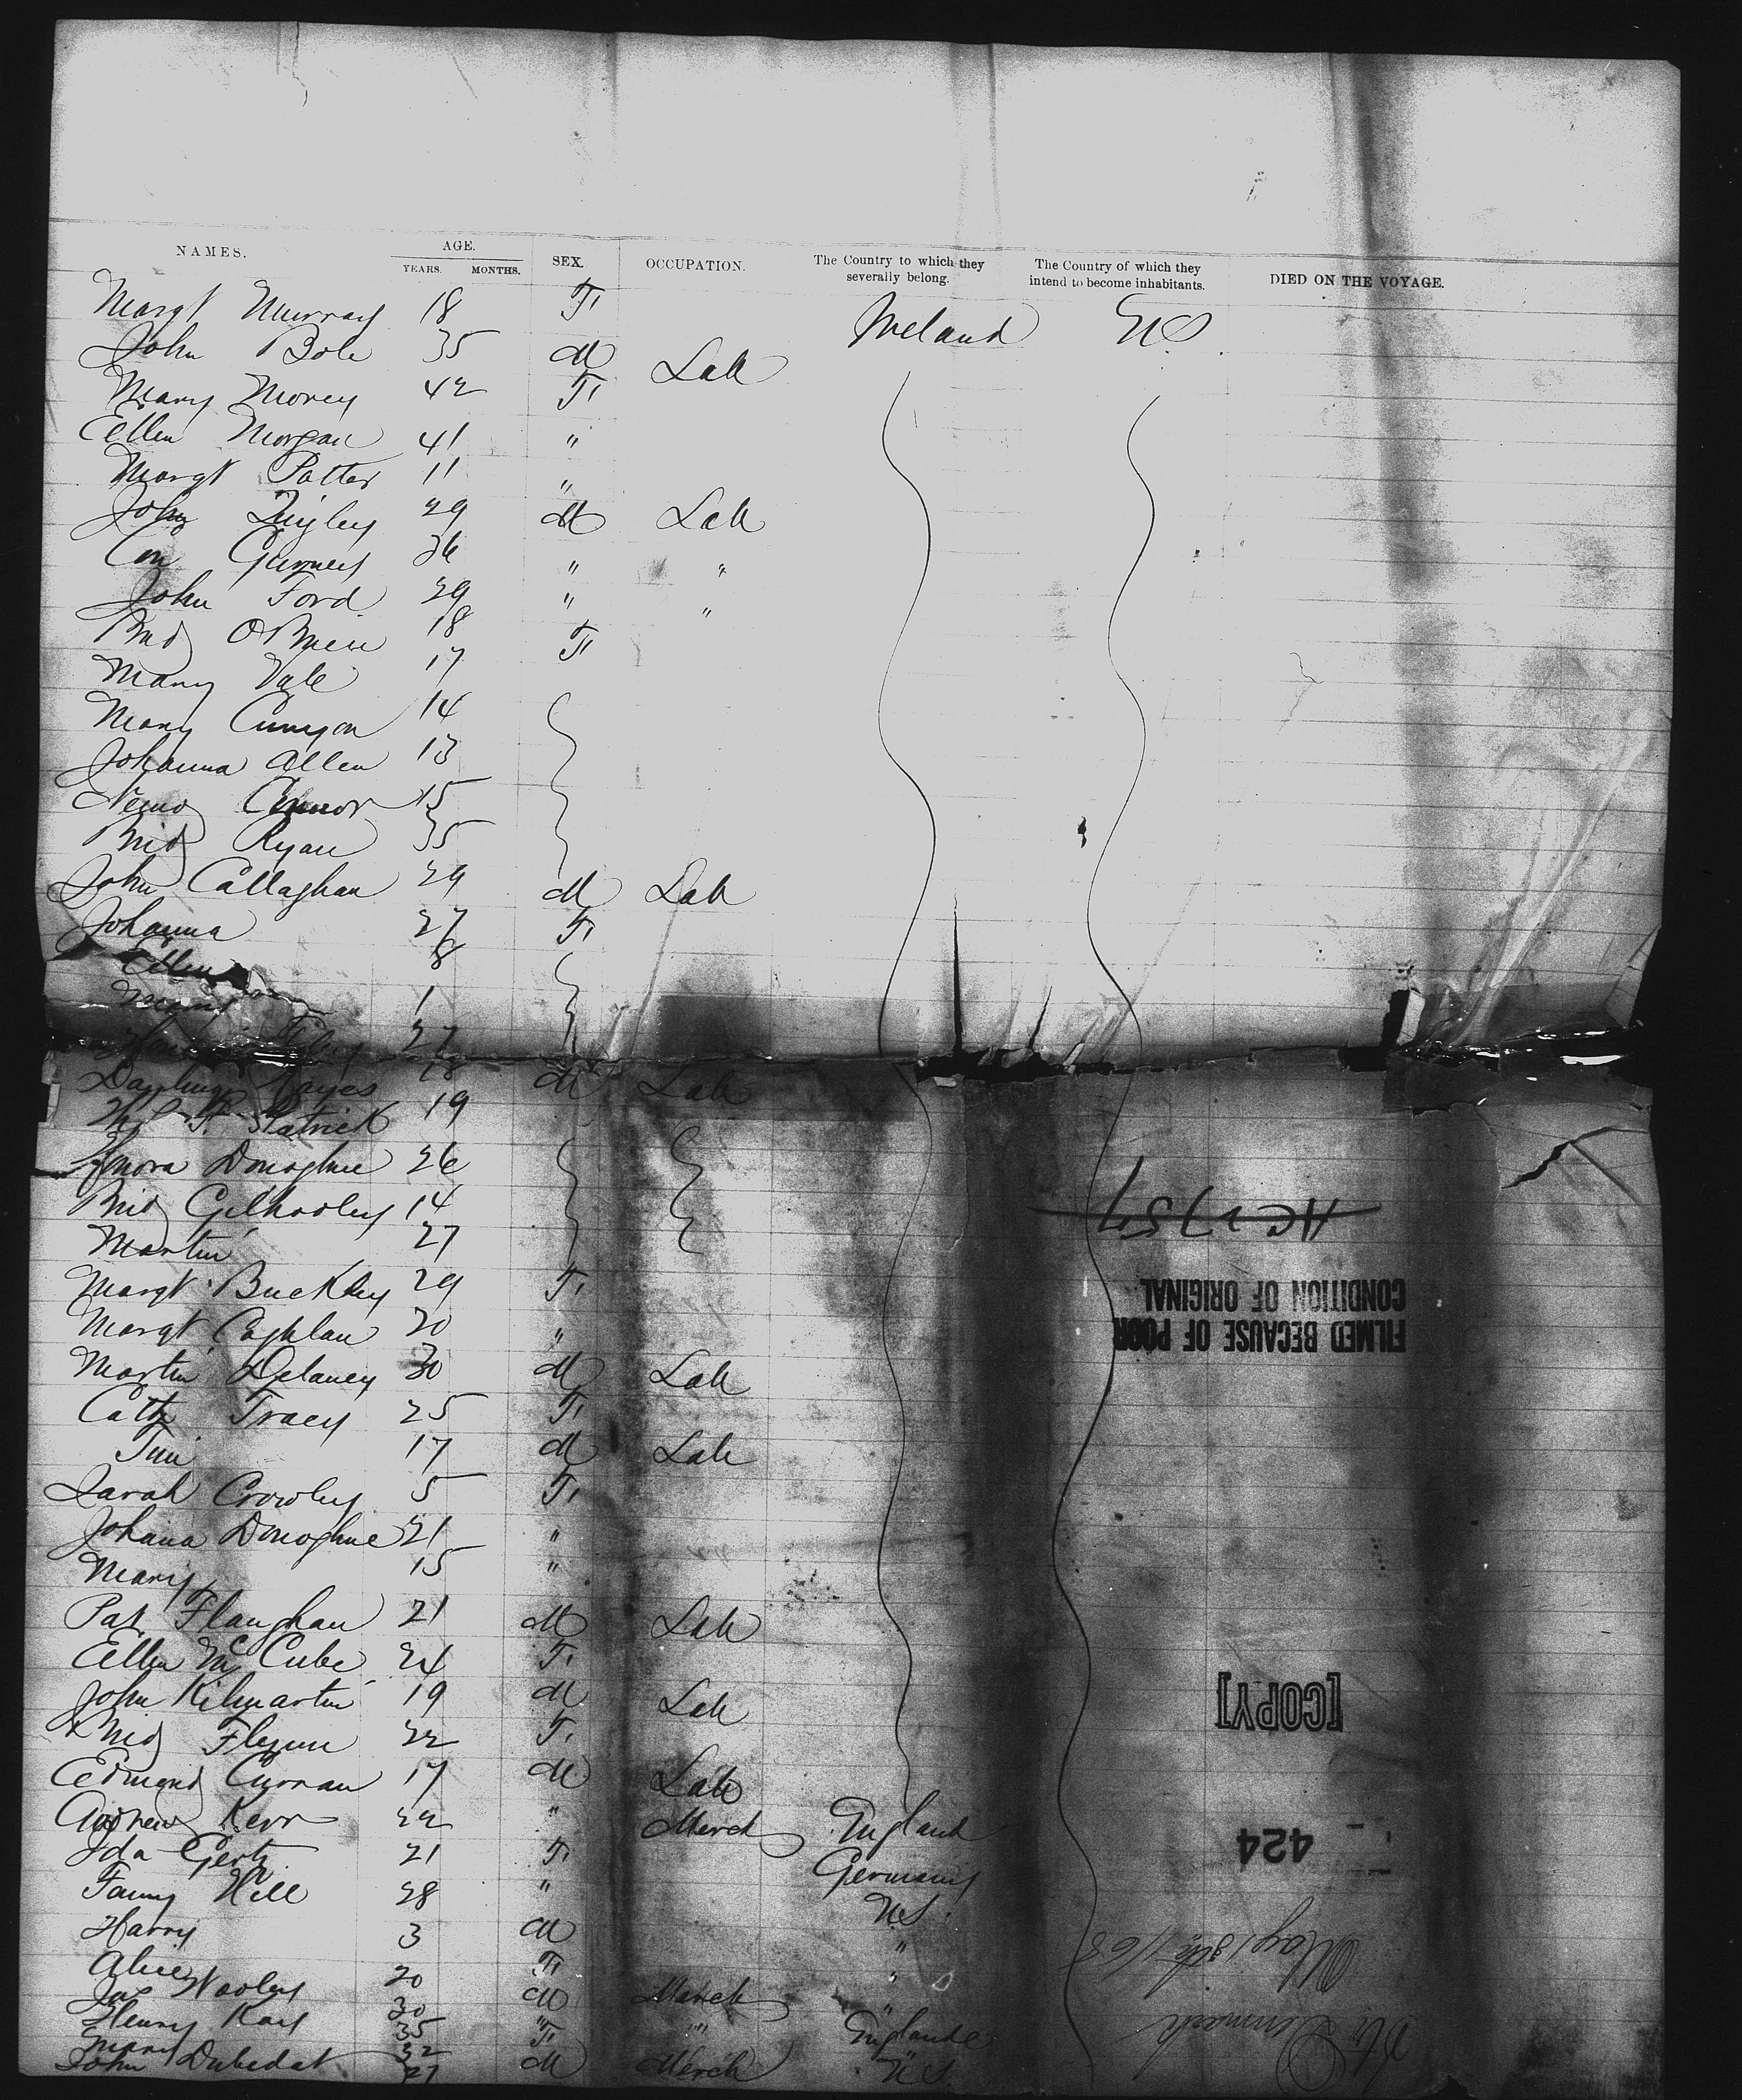 NAMES. AGE. SEX. OCCUPATION. The Country to which they severally belong. The Country of which they intend to become inhabitants. DIED ON THE VOYAGE.
YEARS. MONTHS.
Margt Murray 18 F Ireland US
John Bole 35 M Lab
Mary Morey 42 F
Ellen Morgan 41 "
Margt Potter 11 "
John Quigley 29 M Lab
Con 36 " "
John Ford 29 " "
Brid OBrien 18 F
Mary Vale 17
Mary 14
Johanna Allen 13
Connor 15
Brid Ryan 35
John Callaghan 29 M Lab
Johanna 27 F
Ellen 8
Mary 1
27
Hayes 18 M Lab
F. Patrick 19
Donoghue 26
Brid Gilhooley 14
Martin 27
Margt Buckley 29 F
Margt Coghlan 20 "
Martin Delaney 30 M Lab
Cath Tracy 25 F
Tim 17 M Lab
Sarah Crowley 5 F
Johana Donoghue 21 "
Mary 15 "
Pat Flaughan 21 M Lab
Ellen McCube 24 F
John Kilmartin 19 M Lab
Brid Flynn 22 F
Edmond Curran 17 M Lab
Andrew Kerr 22 " Merch England
Ida Gertz 21 F Germany
Fanny Hill 28 " US
Harry 3 M "
Alice 20 F "
Jas Wooley 30 M Merch "
Henry Kay 35 " " England
Mary 32 F "
John Dubedat 27 M Merch US
FILMED BECAUSE OF POOR
CONDITION OF ORIGINAL
[COPY]
424
May 18th /68